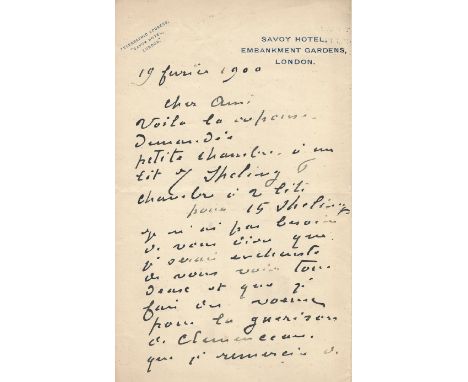 TELEGRAPHIC ADDRESS,
"SAVOY HOTEL,
LONDON."
SAVOY HOTEL,
EMBANKMENT GARDENS,
LONDON.
19 fevrie 1900
cher Ami
Voila la reponse
demandée
petite chambre a un
lit 7 Sheling
chambre a 2 lits
pour 15 Shelings
je n'ai pas besoin
de vous dire que
j' serai enchanté
de vous voir tous
deux et que j'
fais des voeux
pour la guerison
de Clemenceau.
que j' remercie de